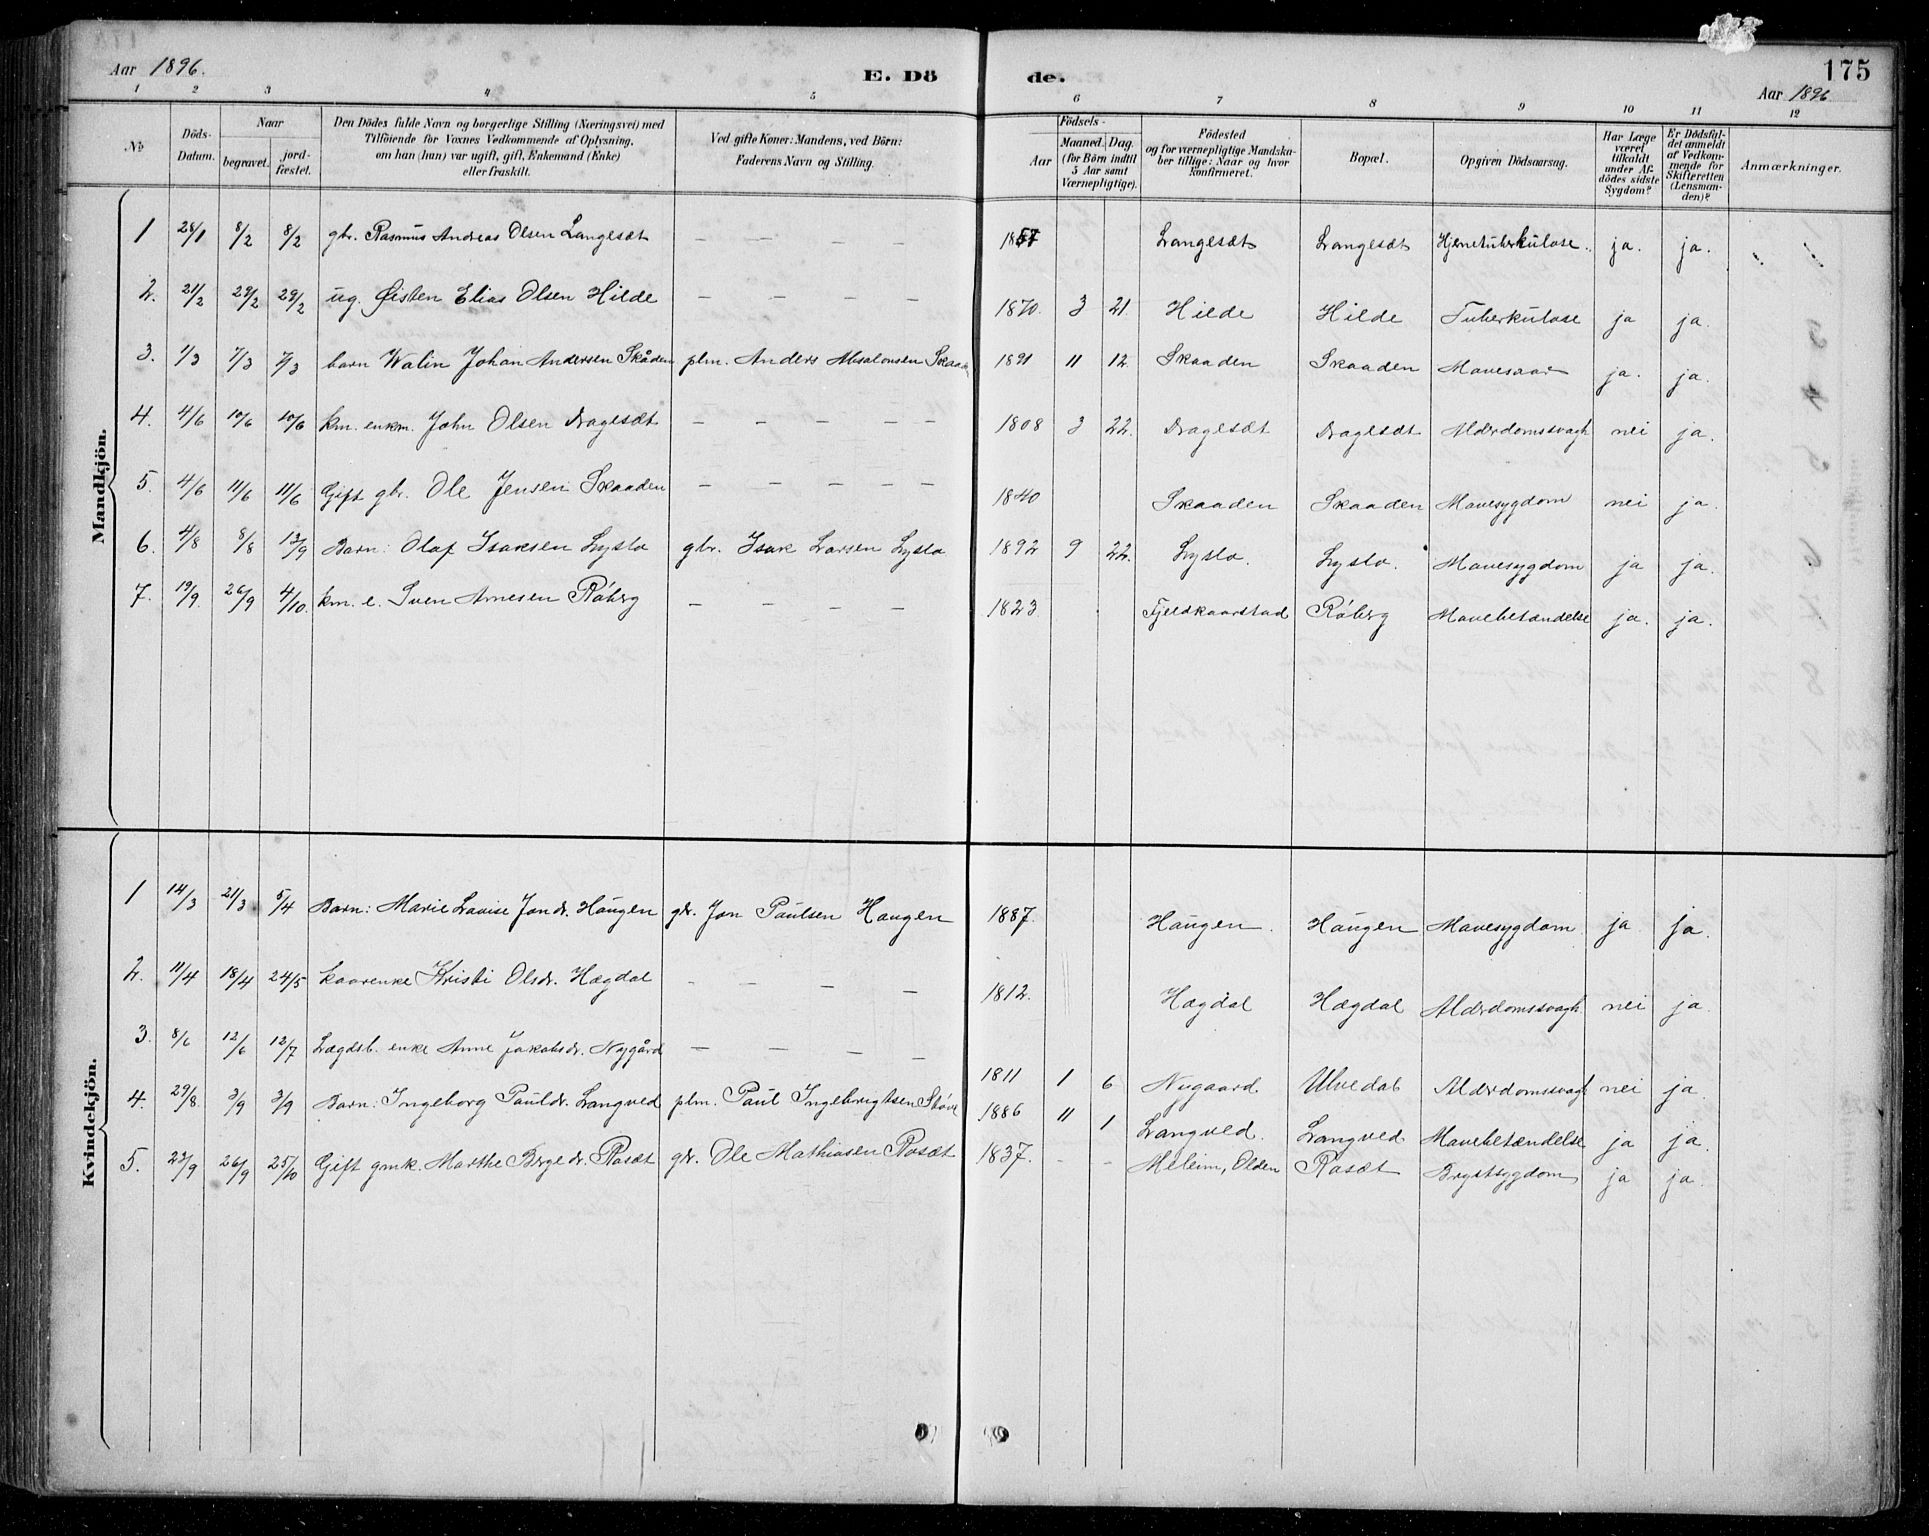 Aar 1896. E. Dö de. 175
Aar 1896
1 2 3 4 5 6 7 8 9 10 11 12
No Döds-Datum. Naar begravet. jordfæstet. Den Dödes fulde Navn og borgerlige Stilling (Næringsvei) med Tilföiende for Voxnes Vedkommende af Oplysning, om han (hun) var ugift, gift, Enkemand (Enke) eller fraskilt. Ved gifte Koner: Mandens, ved Börn: Faderens Navn og Stilling. Födsels- Aar Maaned. Dag. (for Börn indtil 5 Aar samt Værnepligtige). Födested og for værnepligtige Mandskaber tillige: Naar og hvor konfirmeret. Bopæl. Opgiven Dödsaarsag. Har Læge været tilkaldt under Afdödes sidste Sygdom? Er Dödsfaldet anmeldt af Vedkommende for Skifteretten (Lensmanden)? Anmærkninger.
Mandkjön.
1 28/1 8/2 8/2 gbr. Rasmus Andreas Olsen Langesæt — — — — 1857 Langesæt Langesæt Hjernetuberkulose. ja. ja.
2. 21/2 29/2 29/2 ug. Øisten Elias Olsen Hilde — — — — 1870. 3 21. Hilde Hilde Tuberkulose ja ja.
3. 1/3 7/3 7/3 barn Walin Johan Andersen Skåden plm. Anders Absalonsen Skaaden 1891 11 12. Skaaden Skaaden Mavesaar ja. ja.
4. 4/6 10/6 10/6 km. enkm. John Olsen Dragesæt — — — — — 1808 3 22. Dragesæt Dragesæt Alderdomssvagh nei ja.
5. 4/6 11/6 11/6 Gift gbr. Ole Jensen Skaaden — — — — — 1840 Skaaden Skaaden Mavesygdom nei ja.
6. 4/8 8/8 13/9 Barn: Olaf Isaksen Lyslo gbr. Isak Larsen Lyslo 1892 9 22. Lyslo. Lyslo. Mavesygdom ja ja.
7. 19/9. 26/9 4/10. km. e. Sven Arnesen Råberg — — — — 1823 Fjeldkaarstad Råberg Mavebetændelse ja. ja.
Kvindekjön.
1 14/3 21/3 5/4 Barn: Marie Lovise Jondr. Haugen gbr. Jon Paulsen Haugen 1887. Haugen. Haugen Mavesygdom ja ja.
2. 11/4 18/4 24/5 kaarenke Kristi Olsdr. Hægdal — — — — 1812. Hægdal Hægdal Alderdomssvagh. nei ja
3. 8/6 12/6 12/7 Lægdsl. enke Anne Jakobsdr. Nygård — — — — 1811 1 6 Nygaard Ulvedal Alderdomssvagh nei ja.
4. 29/8. 3/9 3/9 Barn: Ingeborg Pauldr. Langved plm. Paul Ingebrigtsen 1886 11 1 Langved. Langved Mavebetændelse ja ja.
5. 23/9 26/9 25/10 Gift gmk. Marthe Bergedr. Rosæt gbr. Ole Mathiasen Rosæt 1837. - - Meleim, Olden Rosæt Brystsygdom ja ja.